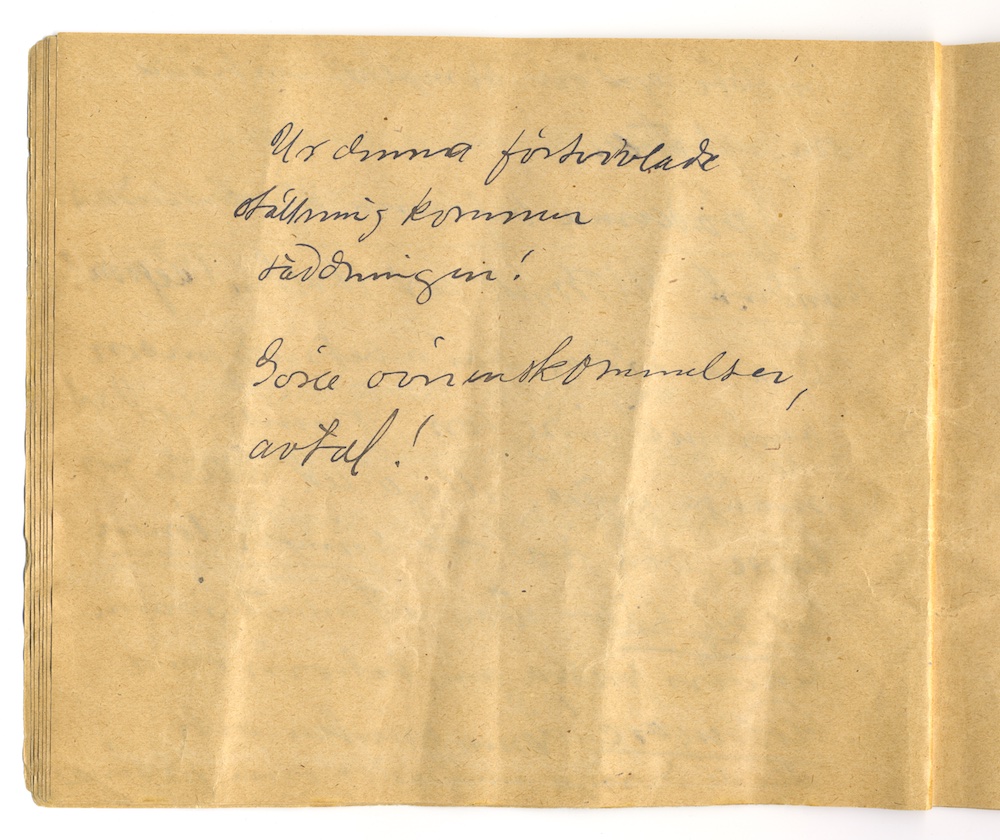 Ur denna förtvivlade
ställning kommer
räddningen!
Göre överenskommelser,
avtal!